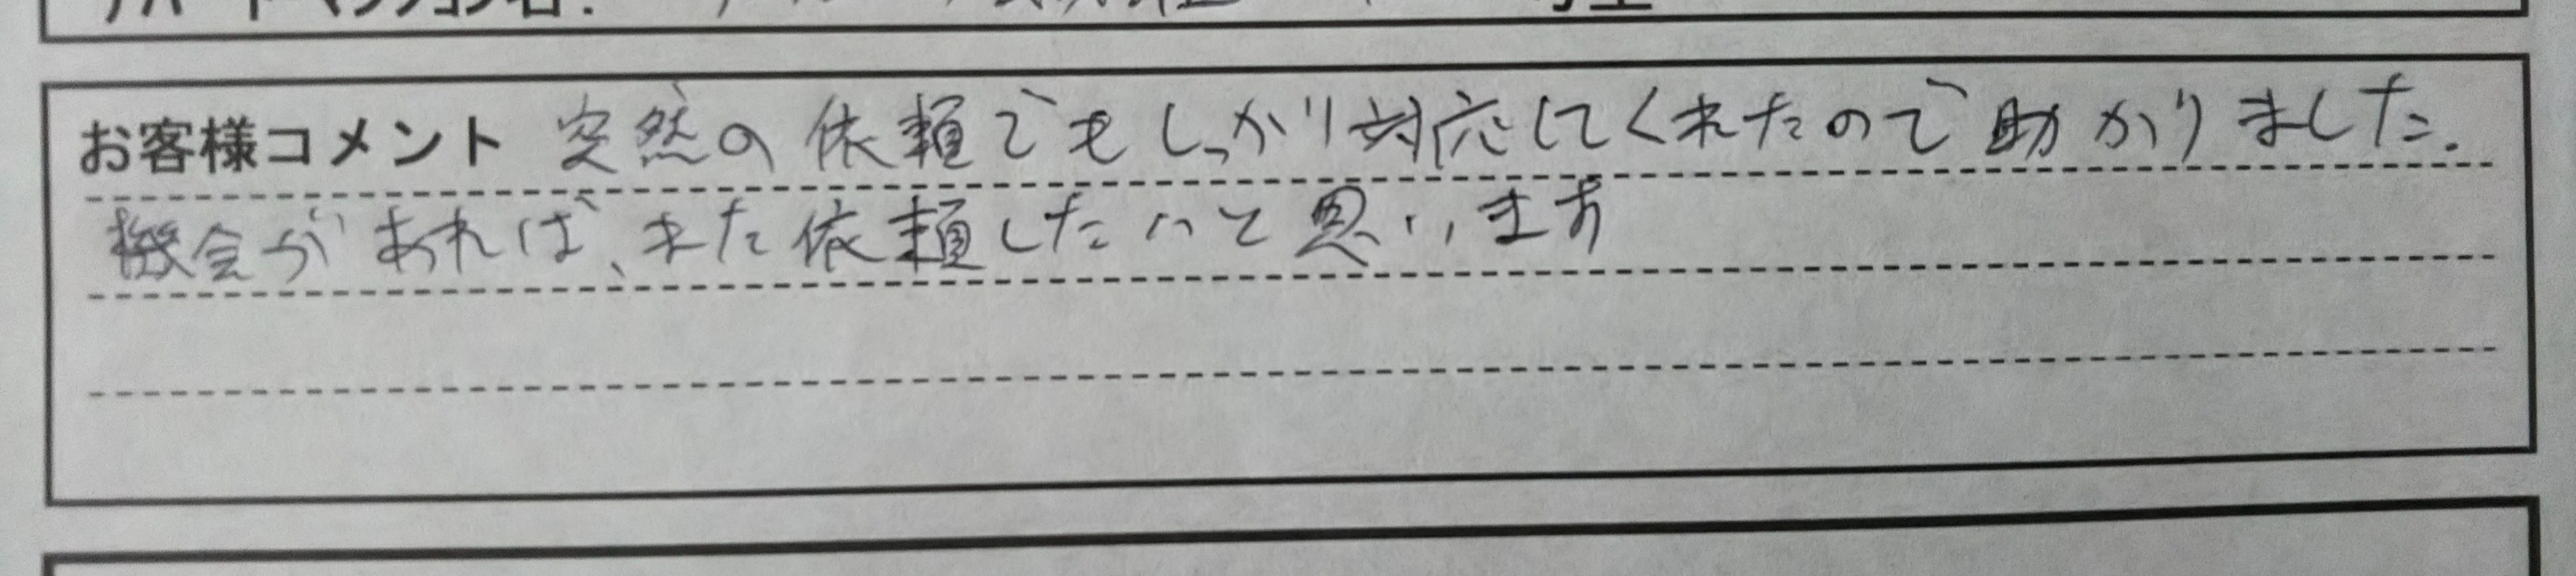 アパートマンション名:
お客様コメント 突然の依頼でもしっかり対応してくれたので助かりました.
機会があれば、また依頼したいと思います